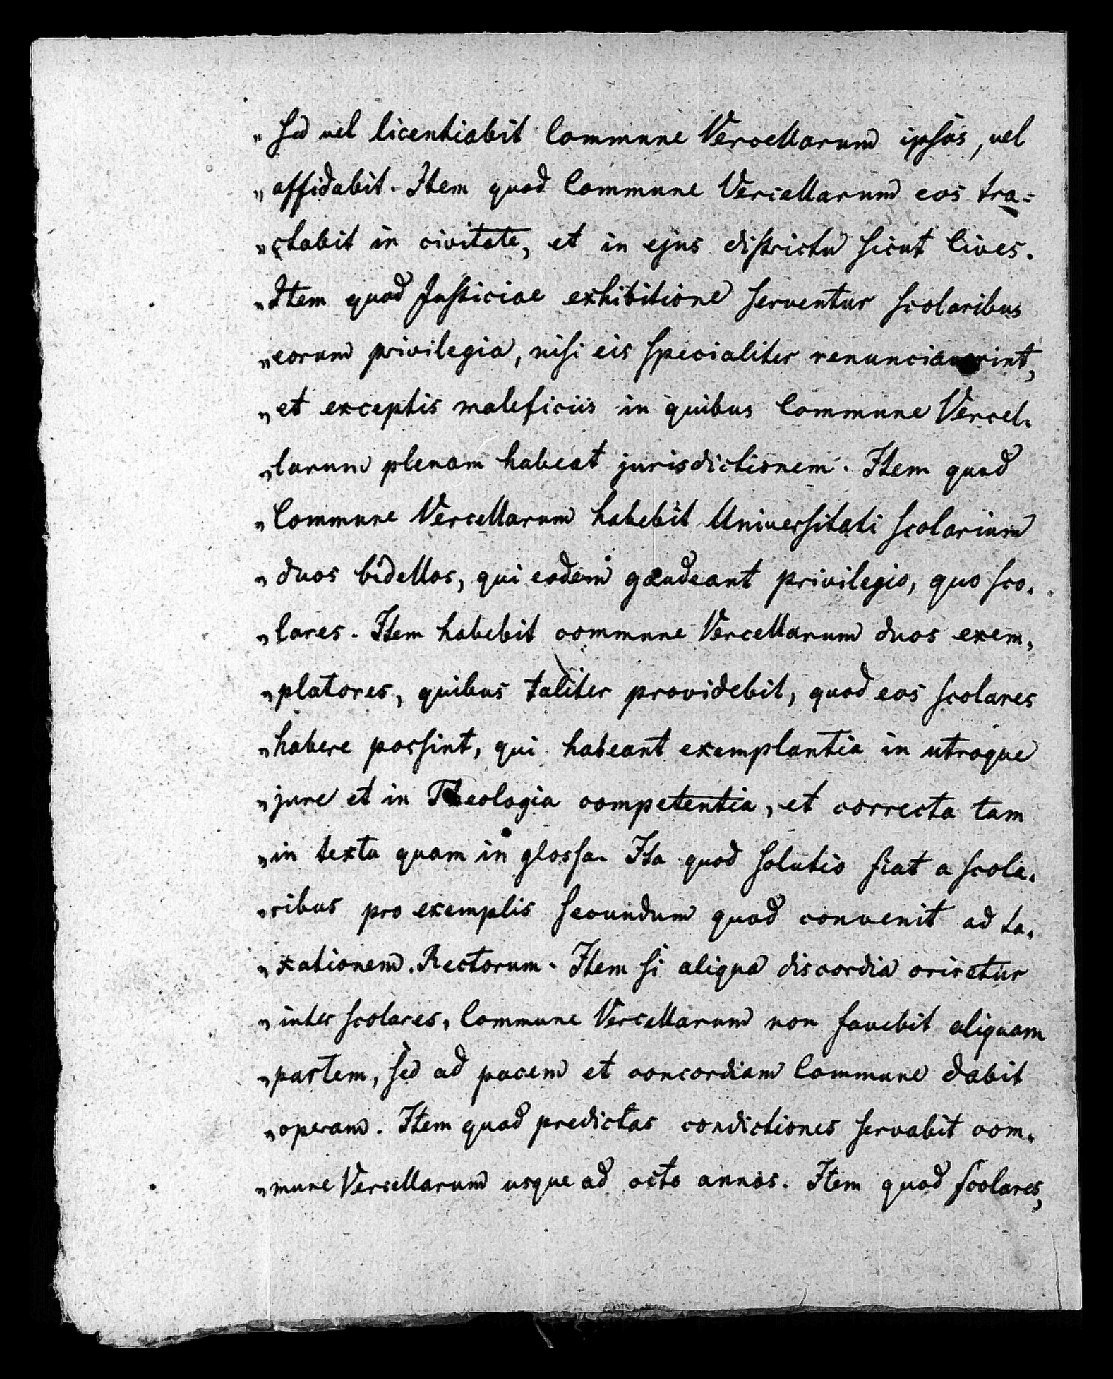 „ sed vel licentiabit Commune Vercellarum ipsos, vel
„ affidabit. Item quod Commune Vercellarum eos tra=
„ ctabit in civitate, et in ejus districtu sicut Cives.
„ Item quod Justiciae exhibitione serventur scolaribus
„ eorum privilegia, nisi eis specialiter renunciaverint,
„ et exceptis maleficiis in quibus Commune Vercel-
„ larum plenam habeat jurisdictionem. Item quod
„ Commune Vercellarum habebit Universitati scolarium
„ duos bidellos, qui eodem gaudeant privilegio, quo sco-
„ lares. Item habebit commune Vercellarum duos exem-
„ platores, quibus taliter providebit, quod eos scolares
„ habere possint, qui habeant exemplantia in utroque
„ jure et in Theologia competentia, et correcta tam
„ in texta quam in glossa. Ita quod solutio fiat a scola-
„ ribus pro exemplis secundum quod convenit ad ta-
„ xationem Rectorum. Item si aliqua discordia oriretur
„ inter scolares, Commune Vercellarum non favebit aliquam
„ partem, sed ad pacem et concordiam Commune dabit
„ operam. Item quod predictas condictiones servabit com-
„ mune Vercellarum usque ad octo annos. Item quod scolares,